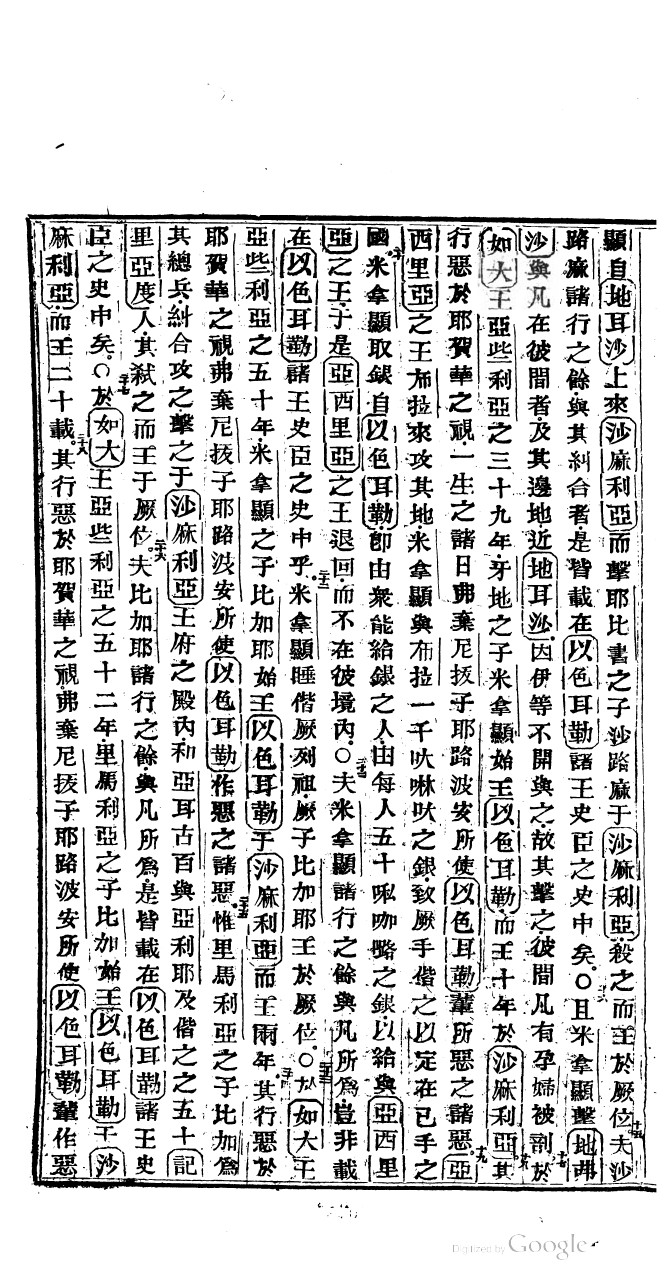 顯自地耳沙上來沙麻利亞而擊耶比書之子沙路麻于沙麻利亞殺之而王於厥位夫沙
路麻諸行之餘與其糾合者是皆載在以色耳勒諸王史臣之史中矣〇且米拿顯擊地弗
沙與凡在彼間者及其邊地近地耳沙因伊等不開與之故其擊之彼間凡有孕婦被剖於
如大王亞些利亞之三十九年牙地之子米拿顯始王以色耳勒而王十年於沙麻利亞其
行惡於耶賀華之視一生之諸日弗棄尼抜子耶路波安所使以色耳勒輩所惡之諸惡亞
西里亞之王布拉來攻其地米拿顯與布拉一千吠啉吠之銀致厥手偕之以定在己手之
國米拿顯取銀自以色耳勒即由衆能給銀之人由每人五十𠯗咖略之銀以給與亞西里
亞之王于是亞西里亞之王退回而不在彼境內〇夫米拿顯諸行之餘與凡所爲豈非載
在以色耳勒諸王史臣之史中乎米拿顯睡偕厥列祖厥子比加耶王於厥位〇於如大王
亞些利亞之五十年米拿顯之子比加耶始王以色耳勒于沙麻利亞而王兩年其行惡於
耶賀華之視弗棄尼抜子耶路波安所使以色耳勒作惡之諸惡惟里馬利亞之子比加爲
其總兵糾合攻之擊之于沙麻利亞王府之殿內和亞耳古百與亞利耶及偕之之五十記
里亞度人其弑之而王于厥位夫比加耶諸行之餘與凡所爲是皆載在以色耳勒諸王史
臣之史中矣〇於如大王亞些利亞之五十二年里馬利亞之子比加始王以色耳勒于沙
麻利亞而王二十載其行惡於耶賀華之視弗棄尼抜子耶路波安所使以色耳勒輩作惡
Digitized by Google